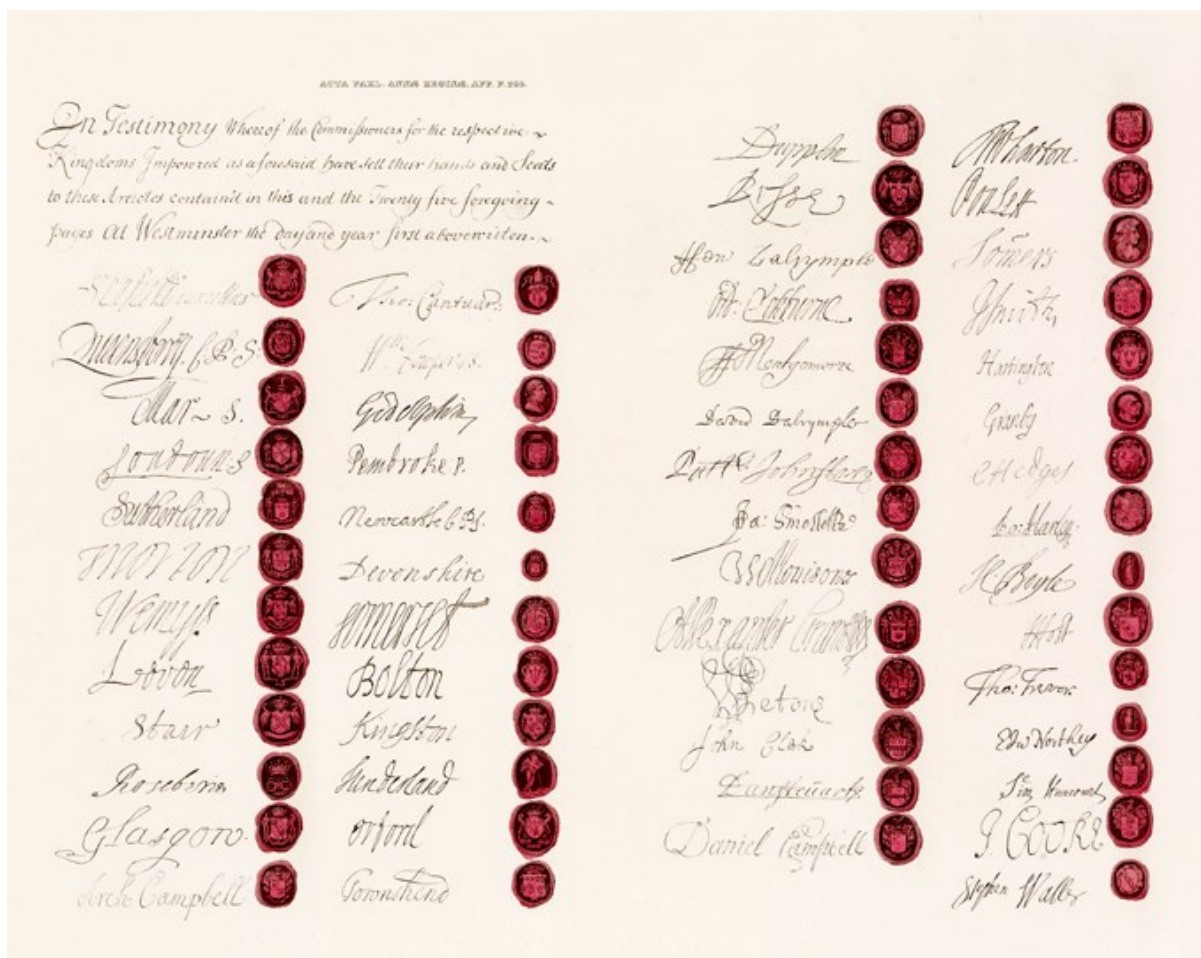 ACTA PARL. ANNÆ REGINÆ. APP. P. 205.
In Testimony Whereof the Commissioners for the respective
Kingdoms Impowered as aforesaid have sett their hands and Seals
to these Articles contain'd in this and the Twenty five foregoing
pages At Westminster the day and year first abovewritten
Seafield Cancellar
Queensberry. C.P.S.
Mar S.
Loudoun S
Sutherland
Morton
Wemyss
Leven
Stair
Roseberrie
Glasgow
Arch Campbell
Tho: Cantuar:
Godolphin,
Pembroke. P.
Newcastle C.P.S.
Devonshire
Somerset
Bolton
Kingston
Sunderland
Orford
Townshend
Dupplin
Rosse
Hew Dalrymple
Montgomerie
David Dalrymple
Patt Johnstoun
Ja: Smollett
Morisone
Alexander Grant
Seton
John Clerk
Dan Steuart
Daniel Campbell
Wharton.
Poulett
Somers
J Smith,
Hartington
Granby
C Hedges
Ro: Harley
H Boyle
Holt
Tho: Trevor
Edw Northey
Sim Harcourt
J. COOKE
Stephen Waller